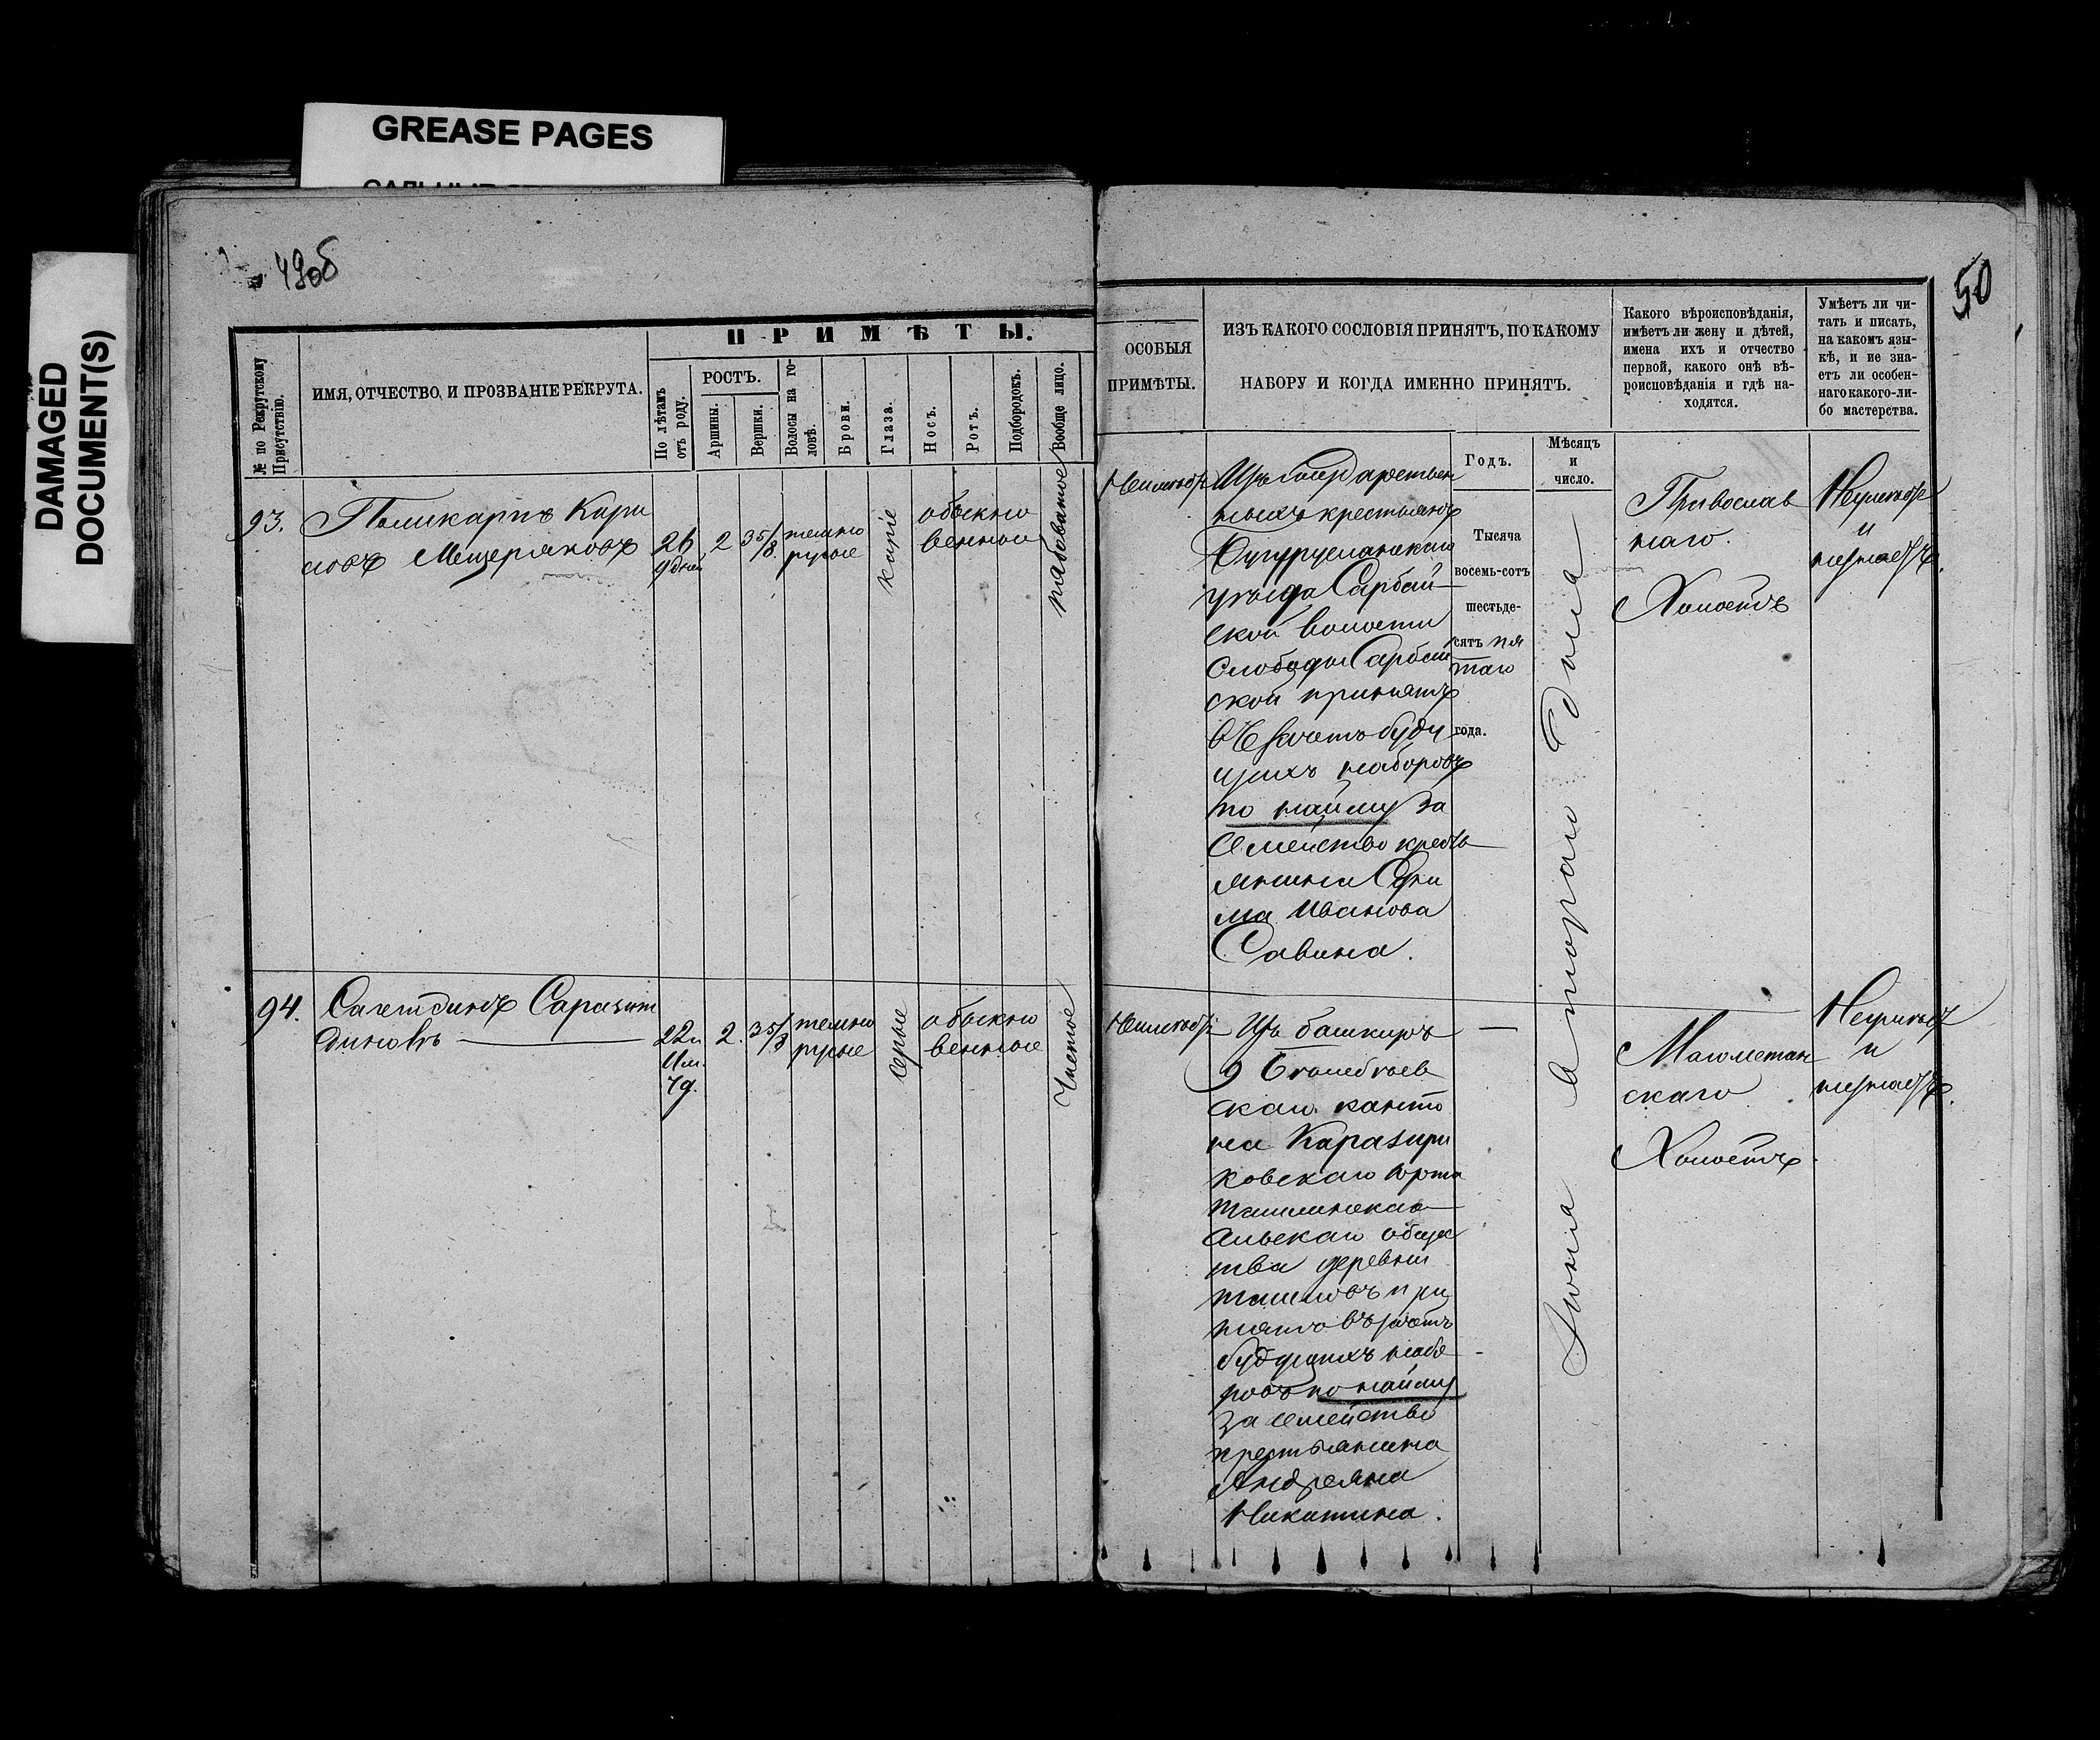 GREASE PAGES
DAMAGED
DOCUMENT(S)
49об
50
ПРИМѢТЫ.
№ по Рекрутскому
Присутствію.
ИМЯ, ОТЧЕСТВО, И ПРОЗВАНІЕ РЕКРУТА.
По лѣтамъ
отъ роду.
РОСТЪ.
Аршины.
Вершки.
Волосы на го-
ловѣ.
Брови.
Глаза.
Носъ.
Ротъ.
Подбородокъ.
Вообще лицо.
ОСОБЫЯ
ПРИМѢТЫ.
ИЗЪ КАКОГО СОСЛОВІЯ ПРИНЯТЪ, ПО КАКОМУ
НАБОРУ И КОГДА ИМЕННО ПРИНЯТЪ.
Какого вѣроисповѣданія,
имѣетъ ли жену и дѣтей,
имена ихъ и отчество
первой, какого онѣ вѣ-
роисповѣданія и гдѣ на-
ходятся.
Умѣетъ ли чи-
тать и писать,
на какомъ язы-
кѣ, и не зна-
етъ ли особен-
наго какого-ли-
бо мастерства.
Годъ.
Мѣсяцъ
и
число.
93.
Поликарпъ Кири
ловъ Мещеряковъ
26
9 дней
2
3 5/8
темно
русые
каріе
обыкно
венные
рябоватое
Неимѣетъ
Изъ Государствен
ныхъ крестьянъ
Бугурусланскаго
уѣзда Сарбай-
ской волости
Слободы Сарбай
ской принятъ
въ зачетъ буду
щихъ наборовъ
по найму за
семейство кресть
янина Ефи
ма Иванова
Савина.
Тысяча
восемь-сотъ
шестьде-
сятъ пя
таго
года.
Іюня втораго дня
Православ
наго.
Холостъ
Неумѣетъ
и
незнаетъ.
94.
Сагетдинъ Саразит
диновъ
22 л.
11 м.
7 д.
2.
3 5/8
темно
русые
серые
обыкно
венные
Чистое
Неимѣетъ
Изъ башкиръ
9 Стерлибаев
скаго канто
на
ковскаго юрта
скаго общес
тва деревни
при
нятъ въ зачетъ
будущихъ набо
ровъ по найму
за семейство
крестьянина
Андреяна
Никитина.
Магометан
скаго
Холостъ.
Неумѣетъ
и
незнаетъ.